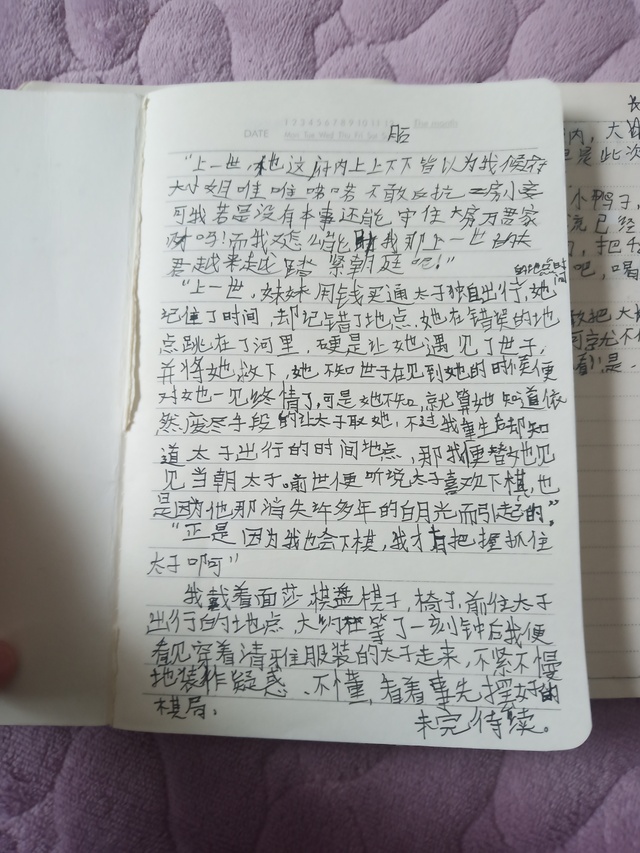 1 2 3 4 5 6 7 8 9 10 11 12
DATE Mon Tue Wed Thu Fri Sat Sun
“上一世,他这府内上上下下皆以为我侯府
大小姐唯唯喏喏不敢反抗二房小妾
可我若是没有本事还能守住大房万贯家
财吗!而我又怎么能 我那上一世的夫
君越来越踏紧朝庭呢!”
的地点时间
“上一世,妹妹用钱买通太子独自出行,她
记住了时间,却记错了地点,她在错误的地
点跳在了河里,硬是让她遇见了世子,
并将她救下,她不知世子在见到她的时候便
对她一见终情了,可是她不知,就算她知道依
然废尽手段的让太子取她,不过我重生后却知
道太子出行的时间地点,那我便替她见
见当朝太子,前世便听说太子喜欢下棋,也
是因为他那消失许多年的白月光而引起的,”
“正是因为我也会下棋,我才有把握抓住
太子啊”
我戴着面莎棋盘棋子,椅子,前往太子
出行的地点,大约在等了一刻钟后我便
看见穿着清雅服装的太子走来,不紧不慢
地装作疑惑、不懂,看着事先摆好的
棋局。
未完待续。
内,大
是此次
小鸭子,
流已经
,把
吧,喝
把大
可就
看!是.